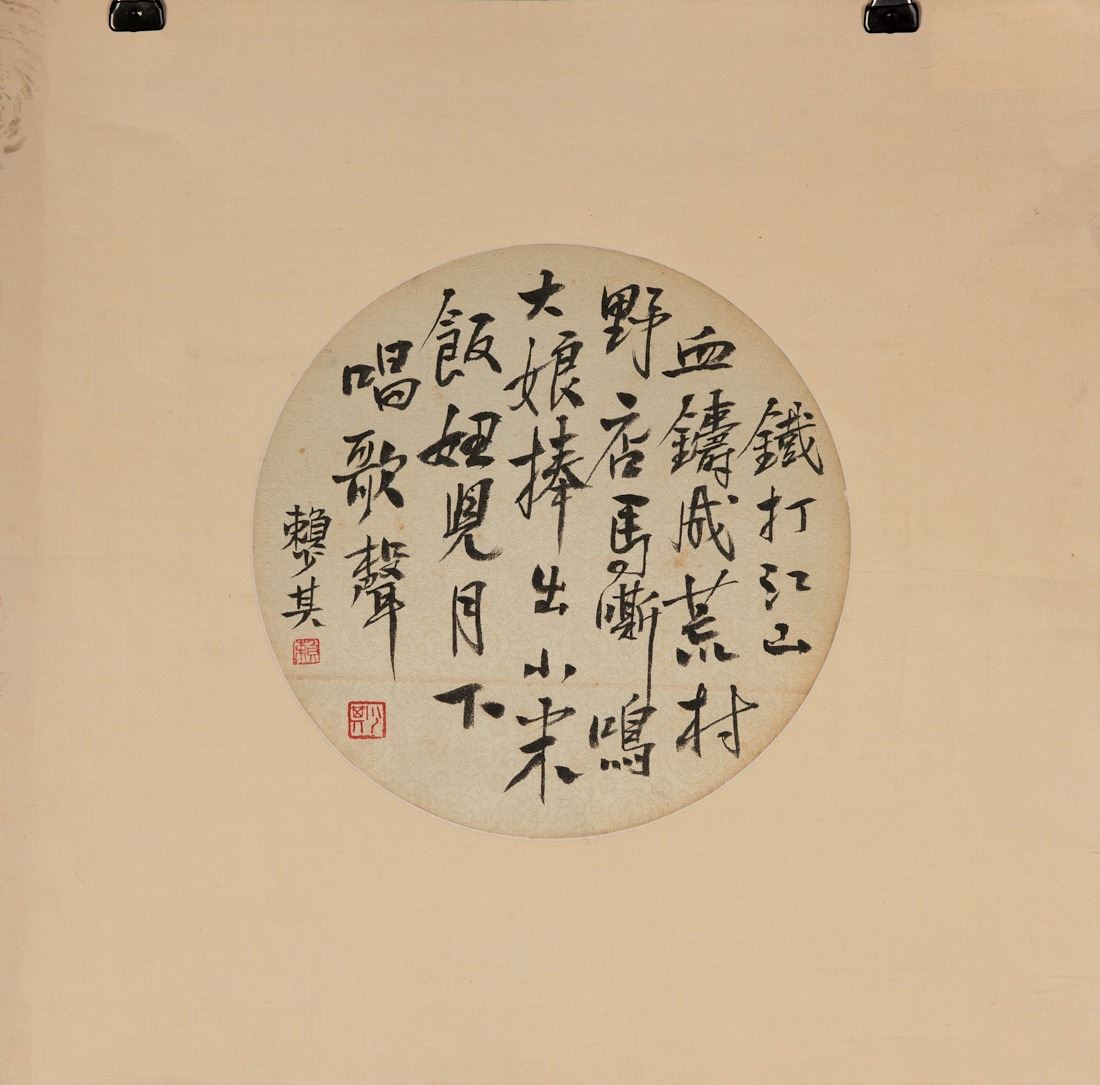 鐵打江山
血鑄成荒村
野店馬嘶鳴
大娘捧出小米
飯妞兒月下
唱歌聲
賴少其